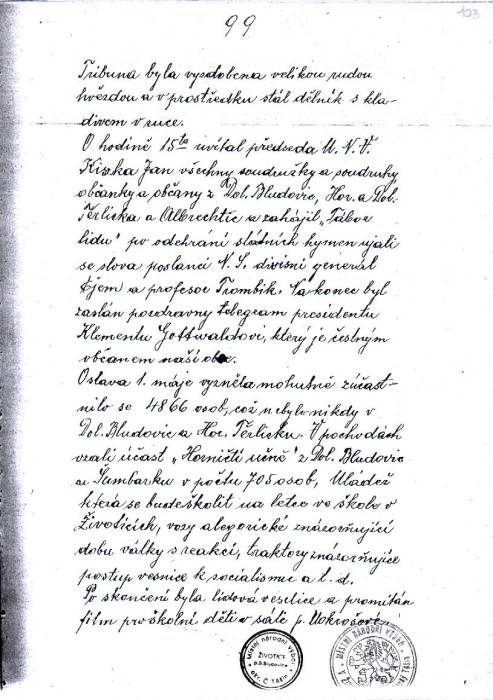 103
99
Tribuna byla vyzdobena velikou rudou
hvězdou a v prostředku stál dělník s kla-
divem v ruce.
O hodině 15te uvítal předseda M. N. V.
Kiszka Jan všechny soudružky a soudruhy
občanky a občany z Dol. Bludovic, Hor. a Dol.
Těrlicka a Albrechtic a zahájil „Tábor
lidu" po odehrání státních hymen ujali
se slova poslanci N. S. divisní generál
Ejem a profesor Trombik. Na konec byl
zaslán pozdravný telegram presidentu
Klementu Gottwaldovi, který je čestným
občanem naší obce.
Oslava 1. máje vyzněla mohutně zúčast-
nilo se 4866 osob, což nebylo nikdy v
Dol. Bludovic a Hor. Těrlicku. V pochodách
vzali účast „Horničtí učně" z Dol. Bludovic
a Šumbarku v počtu 705 osob, Mládež
která se bude školit na letce ve škole v
Životicích, vozy alegorické znázorňující
dobu války s reakcí, traktory znázorňujíce
postup vesnice k socialismu a t. d.
Po skončení byla lidová veselice a promítán
film pro školní děti v sále p. Mokrošové.
Místní národní výbor
ŽIVOTICE
p. D. Bludovice
okr. Č. Těšín
MÍSTNÍ NÁRODNÍ VÝBOR